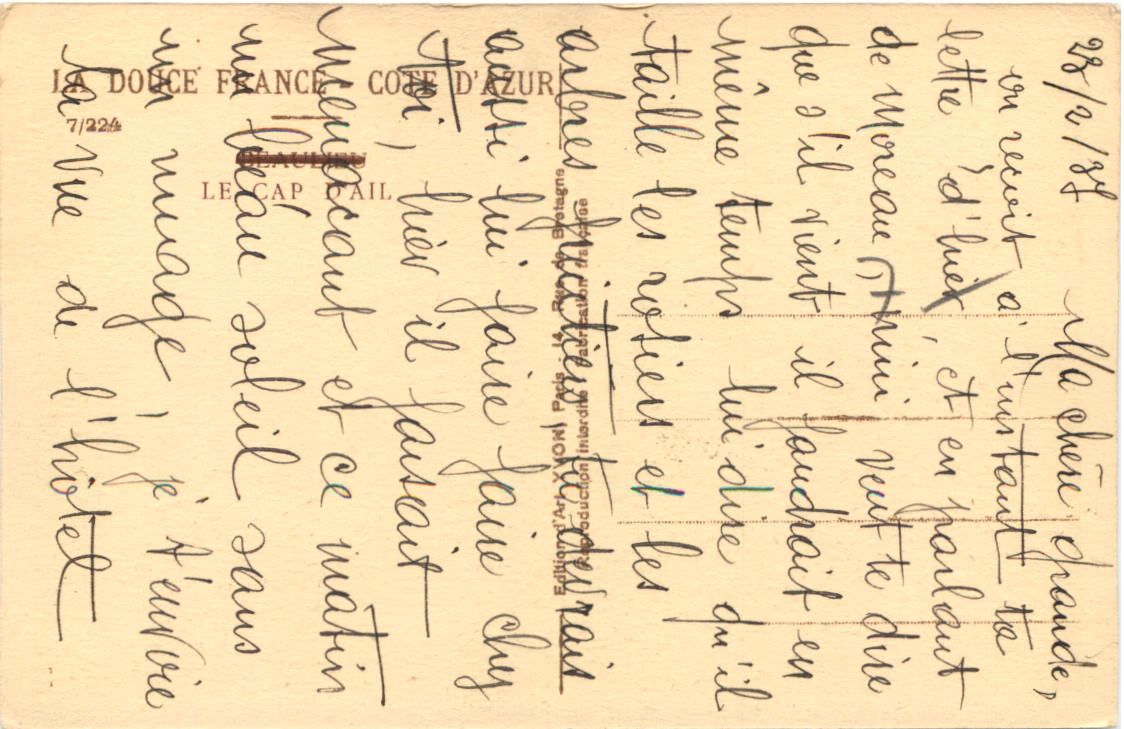 LA DOUCE FRANCE - COTE D'AZUR
7/224
BEAULIEU
LE CAP D'AIL
Edition d'Art YVON, Paris - 14, Rue de Bretagne
Reproduction interdite - Fabrication française
23/2/37
Ma chère grande,
on reçoit à l'instant ta
lettre d'hier, et en parlant
de Moreau, Mimi veut te dire
que s'il vient il faudrait en
même temps lui dire qu'il
taille les rosiers et les
arbres fruitiers, tu devrais
aussi lui faire faire chez
toi, hier il faisait
menaçant et ce matin
un beau soleil sans
un nuage, je t'envoie
la vue de l'hôtel